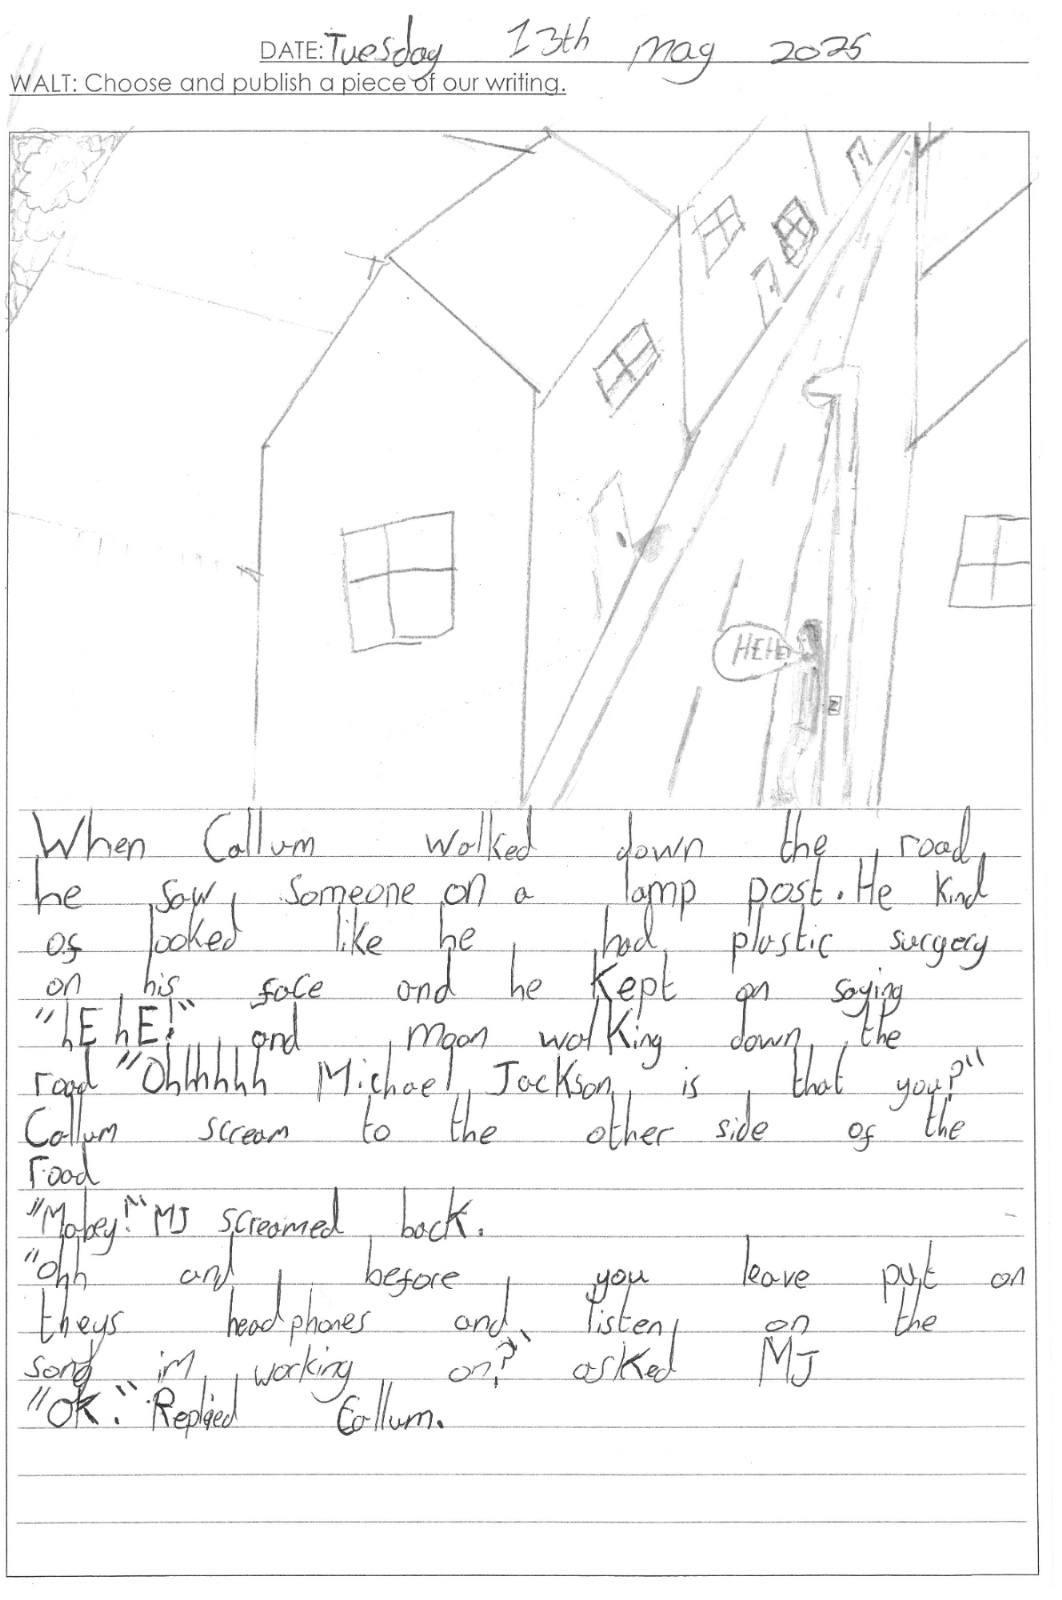 DATE: Tuesday 13th May 2025
WALT: Choose and publish a piece of our writing.
HEHE
When Callum walked down the road,
he saw someone on a lamp post. He kind
of looked like he had plastic surgery
on his face and he kept on saying
"hE hE!" and moon walking down the
road "Ohhhhhh Michael Jackson is that you?"
Callum scream to the other side of the
road
"Mabey!" MJ screamed back.
"Ohh and before you leave put on
theys headphones and listen on the
song im working on?" asked MJ
"OK." Replied Callum.